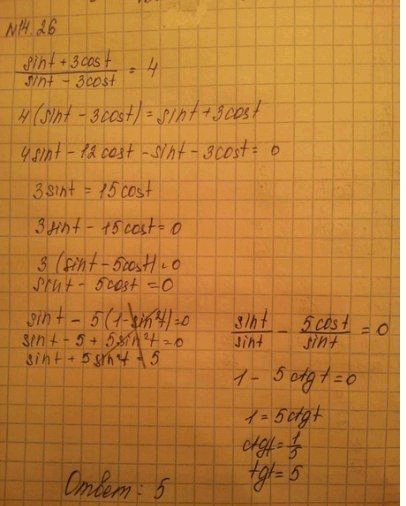 N14.26
(sint + 3cost)/(sint - 3cost) = 4
4(sint - 3cost) = sint + 3cost
4sint - 12cost - sint - 3cost = 0
3sint = 15cost
3sint - 15cost = 0
3(sint - 5cost) = 0
sint - 5cost = 0
sint - 5(1 - sin²t) = 0
sint - 5 + 5sin²t = 0
sint + 5sin²t = 5
sint/sint - 5cost/sint = 0
1 - 5ctgt = 0
1 = 5ctgt
ctgt = 1/5
tgt = 5
Ответ: 5